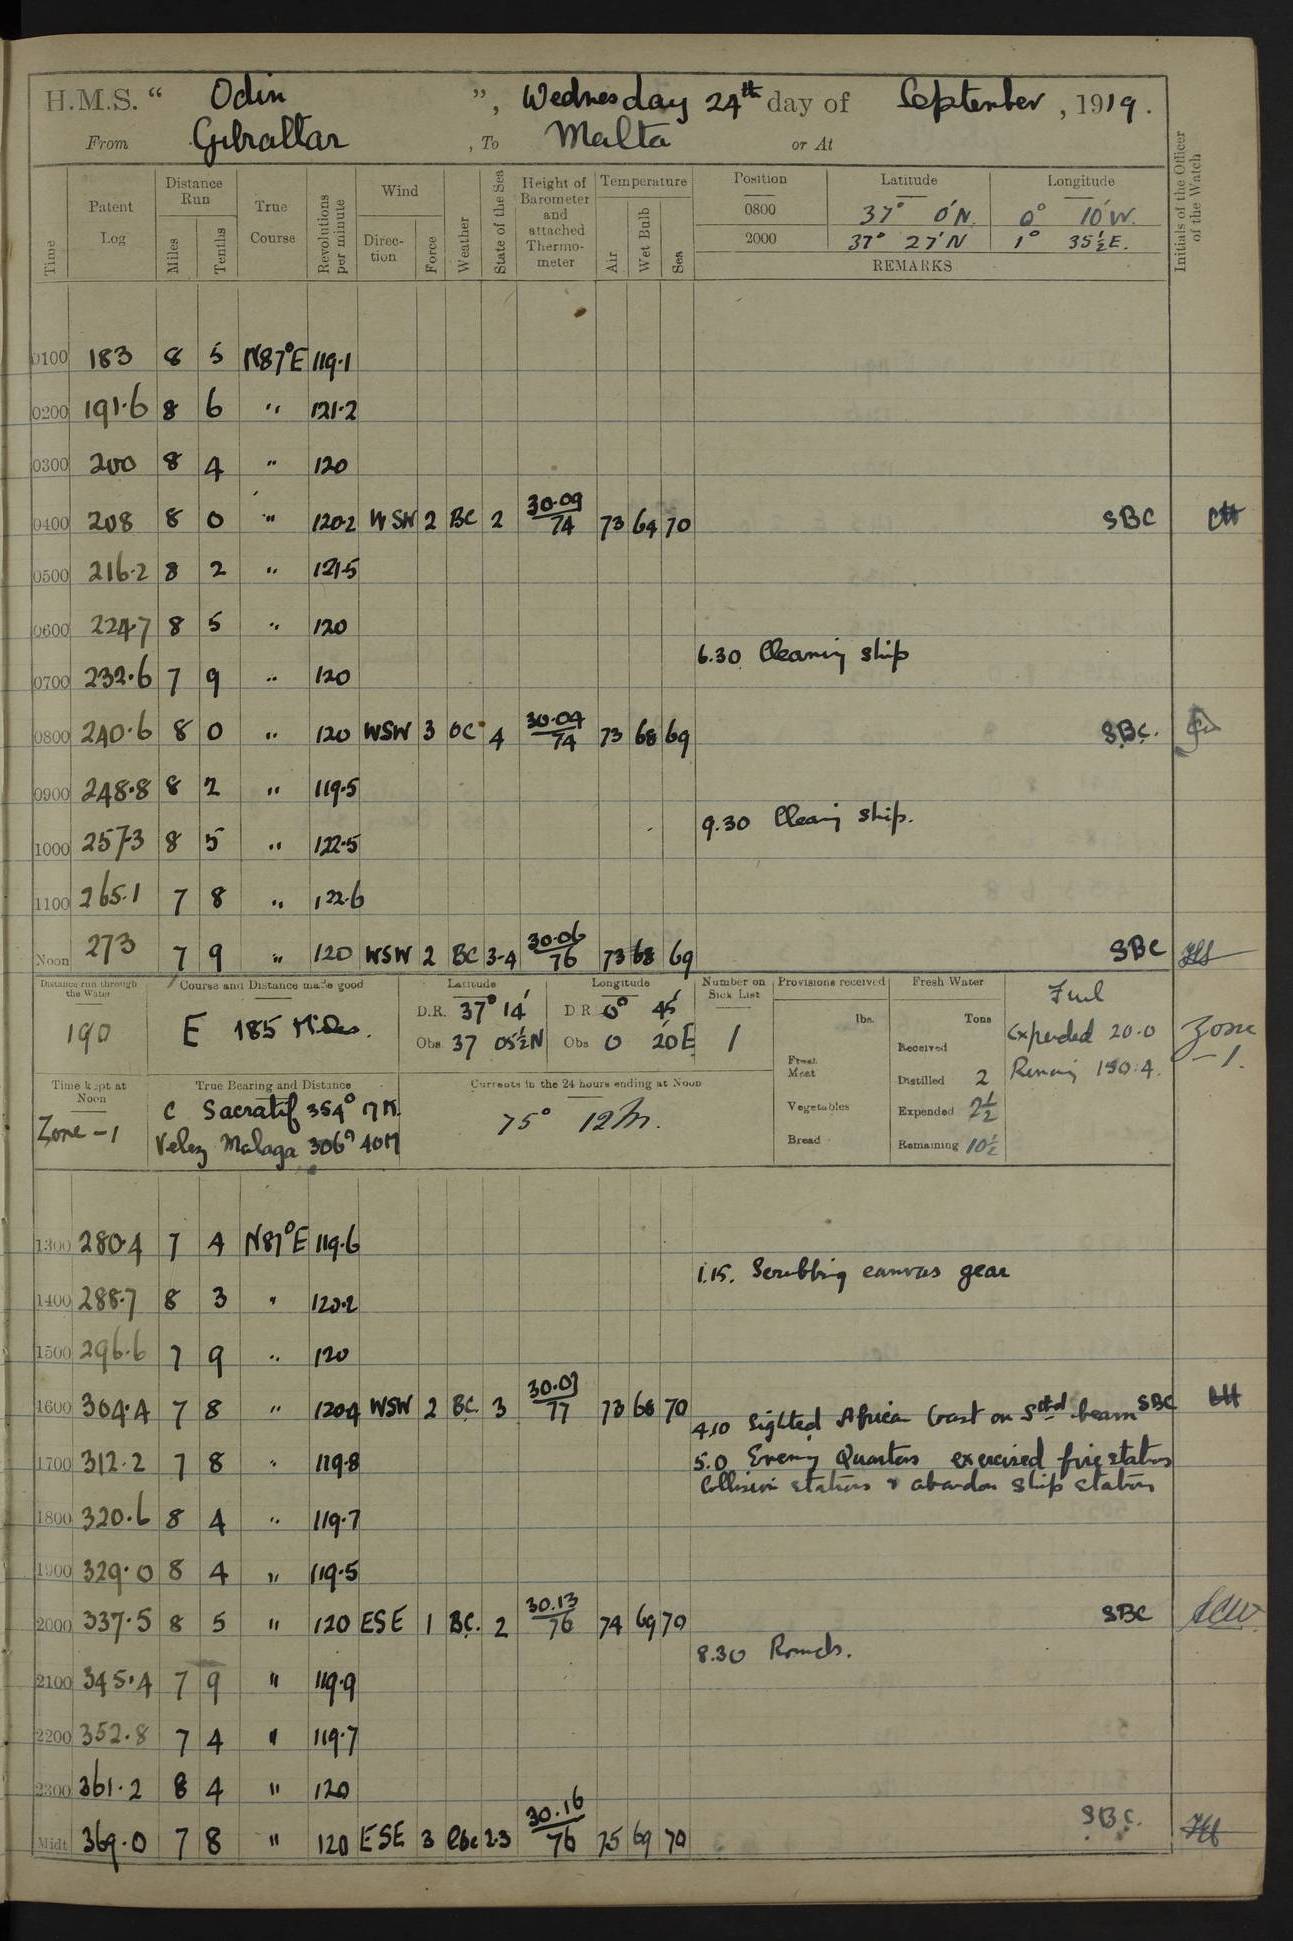 H.M.S. “ Odin ”, Wednesday 24th day of September, 1919.
From Gibraltar, To Malta or At
Time Patent Log Distance Run Miles Tenths True Course Revolutions per minute Wind Direction Force Weather State of the Sea Height of Barometer and attached Thermometer Temperature Air Wet Bulb Sea Position Latitude Longitude Initials of the Officer of the Watch
0800 37° 0'N. 0° 10'W.
2000 37° 27'N 1° 35½E.
REMARKS
0100 183 8 5 N87°E 119.1
0200 191.6 8 6 " 121.2
0300 200 8 4 " 120
0400 208 8 0 " 120.2 WSW 2 BC 2 30.09/74 73 69 70 SBC
0500 216.2 8 2 " 121.5
0600 224.7 8 5 " 120
6.30 Cleaning ship
0700 232.6 7 9 " 120
0800 240.6 8 0 " 120 WSW 3 OC 4 30.04/74 73 68 69 SBC.
0900 248.8 8 2 " 119.5
9.30 Cleang ship.
1000 257.3 8 5 " 122.5
1100 265.1 7 8 " 122.6
Noon 273 7 9 " 120 WSW 2 BC 3-4 30.06/76 73 68 69 SBC
Distance run through the Water Course and Distance made good Latitude Longitude Number on Sick List Provisions received Fresh Water Fuel
190 E 185 Miles. D.R. 37° 14' D R 0° 45' lbs. Tons Expended 20.0 Zone
Obs. 37 05½N Obs 0 20E 1 Received -1.
Fresh Meat Distilled 2 Remaing 150.4.
Time kept at Noon True Bearing and Distance Currents in the 24 hours ending at Noon
Zone -1 C Sacratif 354° 17M. 75° 12m. Vegetables Expended 2½
Velez Malaga 306° 40M Bread Remaining 10½
1300 280.4 7 4 N87°E 119.6
1.15. Scrubbing canvas gear
1400 288.7 8 3 " 120.2
1500 296.6 7 9 " 120
1600 304.4 7 8 " 120.4 WSW 2 BC. 3 30.07/77 73 68 70 SBC
4.10 Sighted African Coast on Stbd beam
1700 312.2 7 8 " 119.8 5.0 Evening Quarters exercised fire stations
Collision stations & abandon ship stations
1800 320.6 8 4 " 119.7
1900 329.0 8 4 " 119.5
2000 337.5 8 5 " 120 ESE 1 BC. 2 30.13/76 74 69 70 SBC
8.30 Rounds.
2100 345.4 7 9 " 119.9
2200 352.8 7 4 " 119.7
2300 361.2 8 4 " 120
Midt 369.0 7 8 " 120 ESE 3 2.3 30.16/76 75 69 70 SBC.